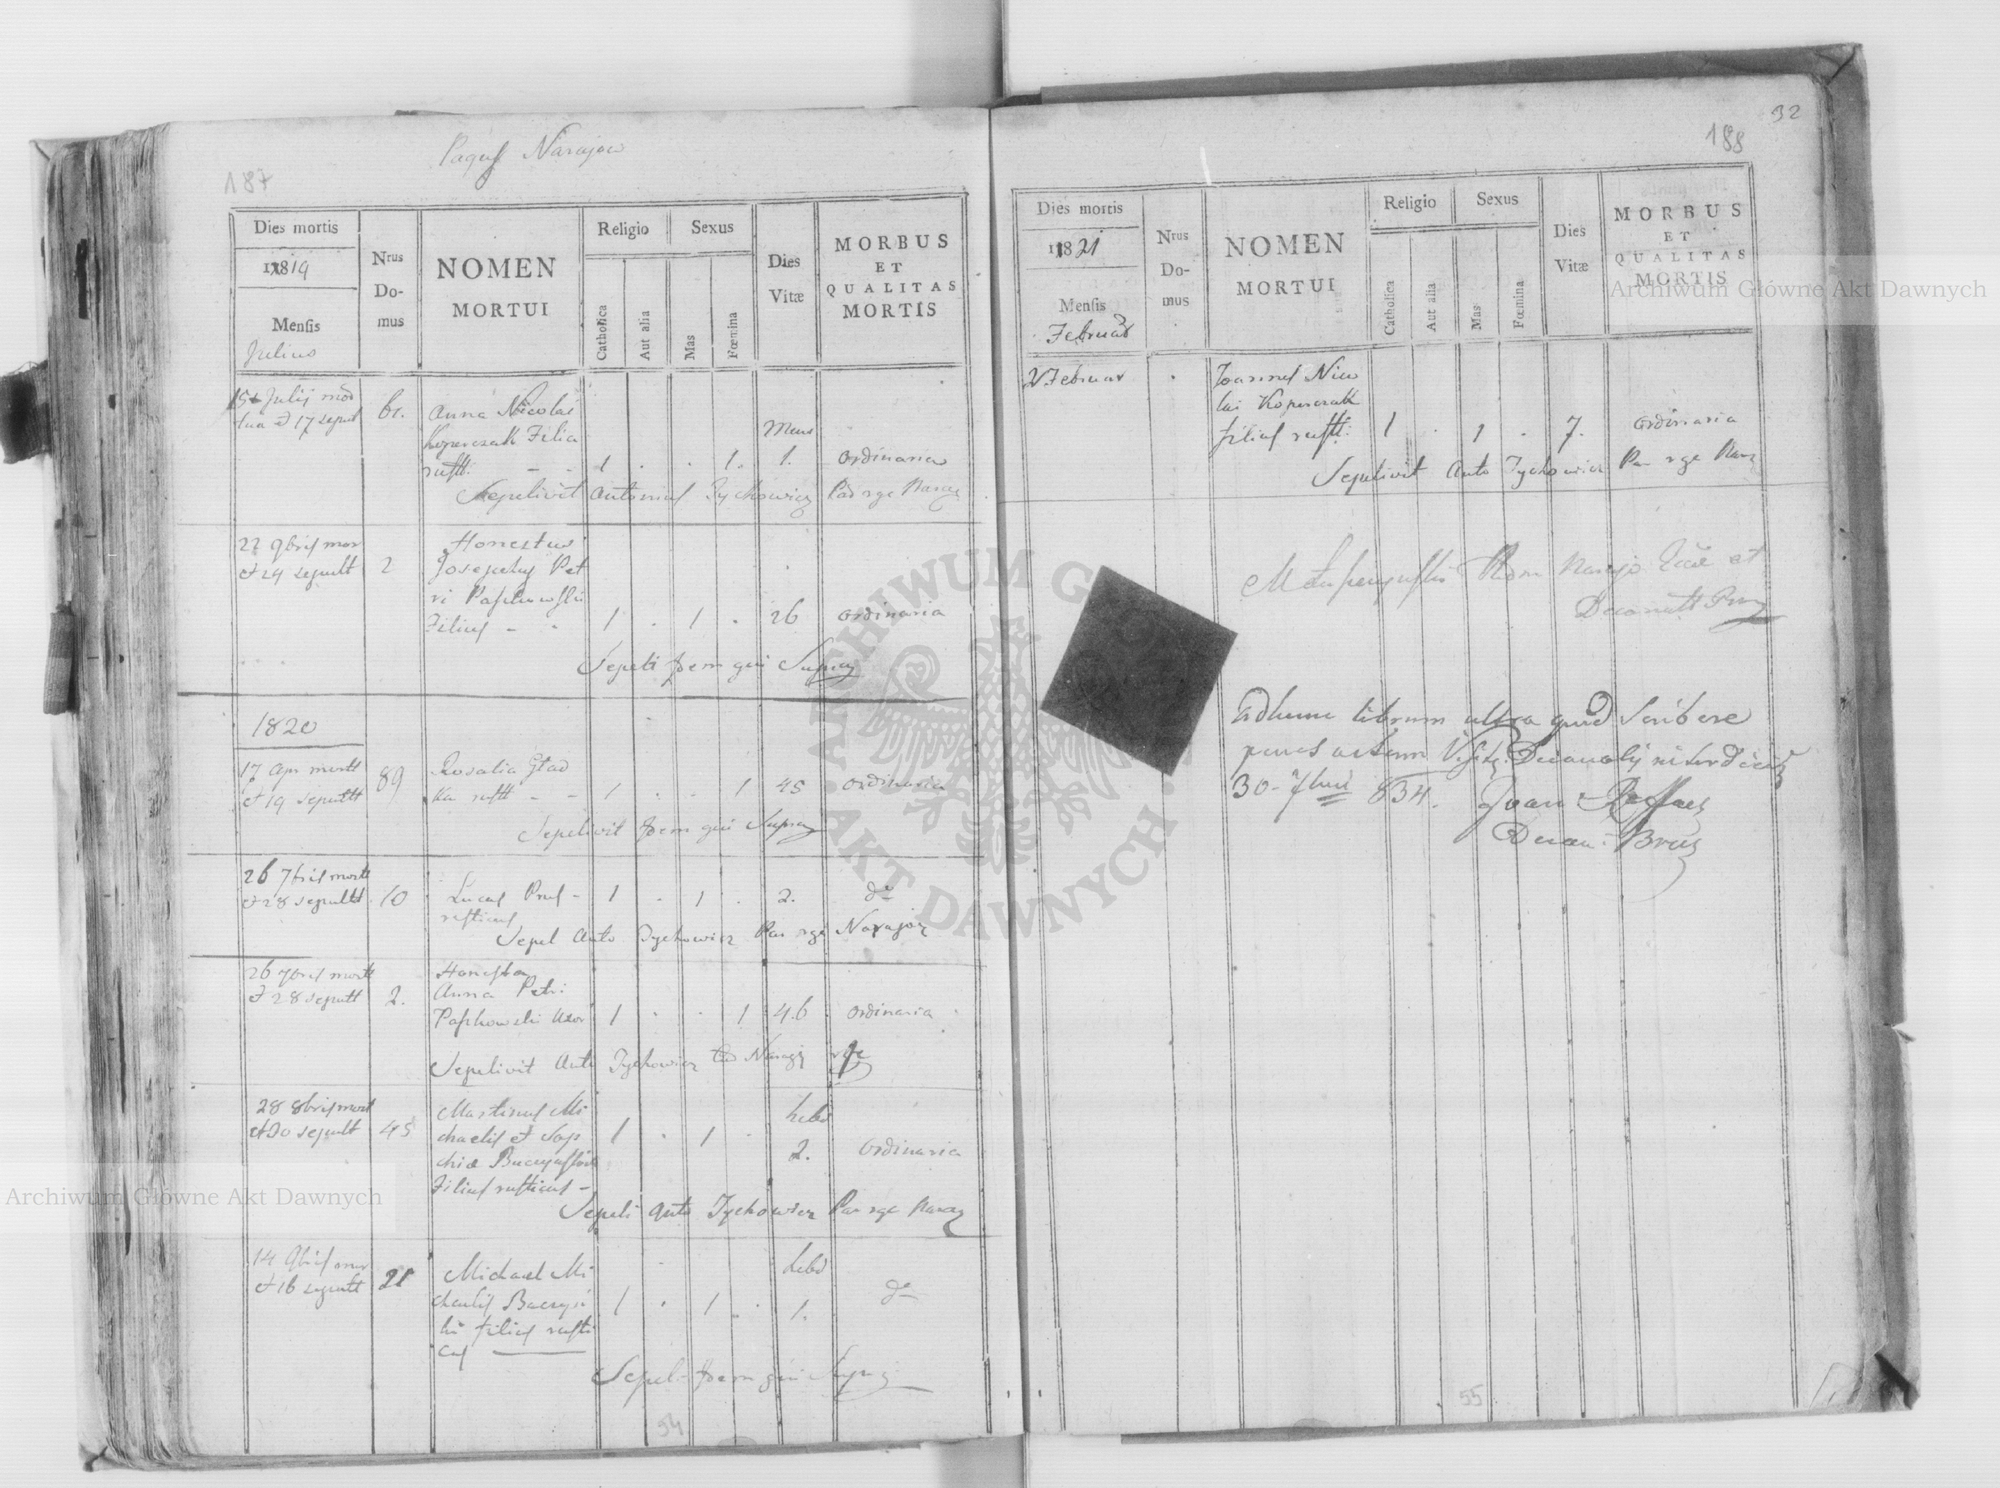 187
Pagus Narajow
Dies mortis
1819
Mensis
Julius
Nrus
Do-
mus
NOMEN
MORTUI
Religio
Catholica
Aut alia
Sexus
Mas
Fœmina
Dies
Vitæ
MORBUS
ET
QUALITAS
MORTIS
15 Julij
et 17 sepult
61.
Anna Nicolai
Koperczak Filia
rustt. - -
1 . . 1.
Mens
1.
ordinaria
Sepelivit Antonius Tychowicz
22 9bris mor
et 24 sepult
2
Honestus
Josephus Pet
ri
Filius - -
1 . 1 . 26 ordinaria
Sepeli Idem qui Supra
1820
17 Apr mortt
et 19 sepultt
89
Rosalia Glad
ka rustt - -
1 . . 1 45 ordinaria
Sepelivit Idem qui Supra
26 7bris mortt
et 28 sepultt
10
Lucas Prus -
rusticus
1 . 1 . 2. do
Sepel Anto Tychowicz Par rge Narajow
26 7bris mortt
et 28 sepultt
2.
Honesta
Anna Petri
Paszkowski uxor
1 . . 1 46 ordinaria
Sepelivit Anto Tychowicz
28 8bris mort
et 30 sepult
45
Martinus Mi
chaelis et Sop
chia
Filius rusticus -
1 . 1 .
hebd
2.
ordinaria
Sepeli Anto Tychowicz Par rge Naraj
14 9bris mor
et 16 sepultt
21
Michael Mi
chaelis Baczyns
ki filius rusti
cus
1 . 1 .
hebd
1.
do
Sepel Idem qui Supra
54
32
188
Dies mortis
1821
Mensis
Februar
Nrus
Do-
mus
NOMEN
MORTUI
Religio
Catholica
Aut alia
Sexus
Mas
Fœmina
Dies
Vitæ
MORBUS
ET
QUALITAS
MORTIS
2 Februar
Joannes Nico
lai Koperczak
filius rustt.
1 . 1 . 7. ordinaria
Sepelivit Anto Tychowicz Par rge Naraj
Narajo et
Adhunc librum ultra quid scribere
penes actum Visit. Decanalis
30 7bris 834.
Decan.
55
Archiwum Główne Akt Dawnych
Archiwum Główne Akt Dawnych
ARCHIWUM G
AKT DAWNYCH